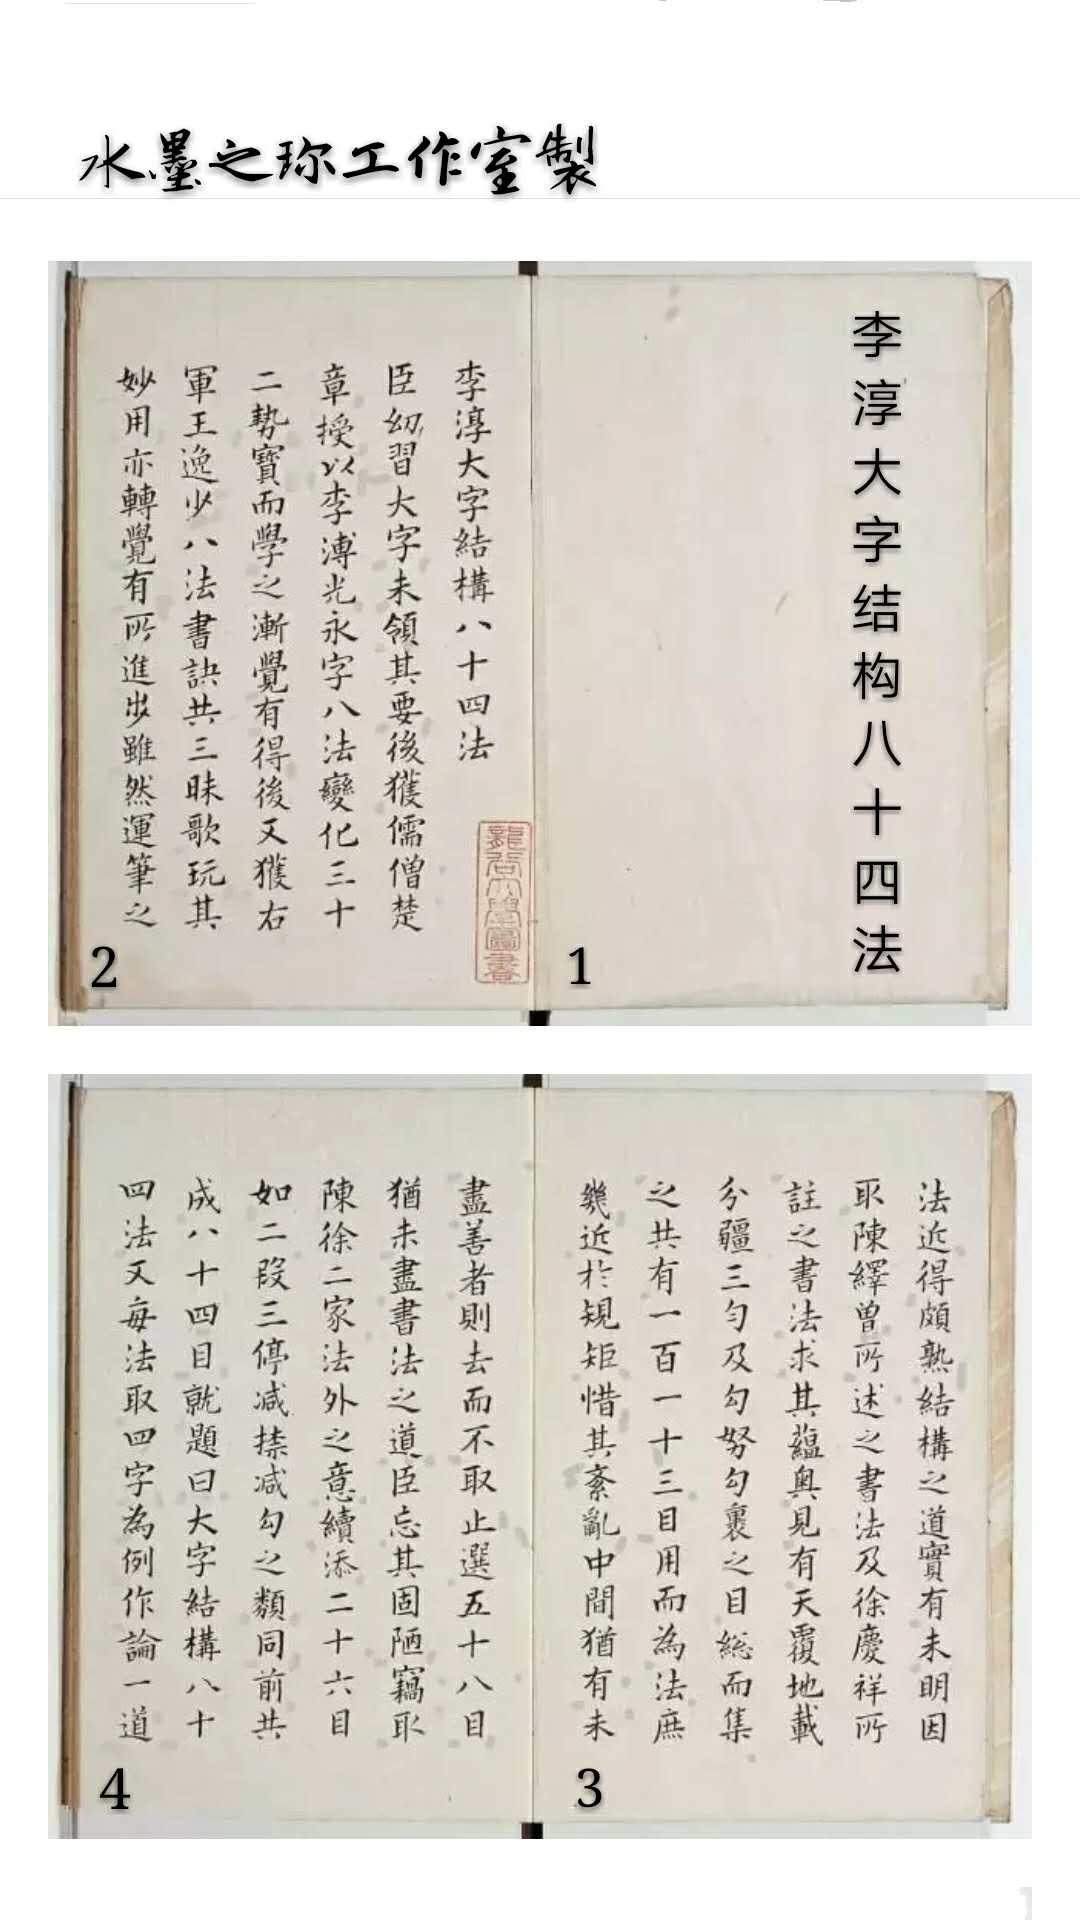 水墨之珎工作室製
李淳大字结构八十四法
1
李淳大字結構八十四法
臣幼習大字未領其要後獲儒僧楚
章授以李溥光永字八法變化三十
二勢寶而學之漸覺有得後又獲右
軍王逸少八法書訣共三昧歌玩其
妙用亦轉覺有所進步雖然運筆之
2
法近得頗熟結構之道實有未明因
取陳繹曾所述之書法及徐慶祥所
註之書法求其蘊奥見有天覆地載
分疆三勻及勾努勾裹之目総而集
之共有一百一十三目用而為法庶
幾近於䂓矩惜其紊亂中間猶有未
3
盡善者則去而不取止選五十八目
猶未盡書法之道臣忘其固陋竊取
陳徐二家法外之意續添二十六目
如二段三停减捺减勾之類同前共
成八十四目就題曰大字結構八十
四法又每法取四字為例作論一道
4